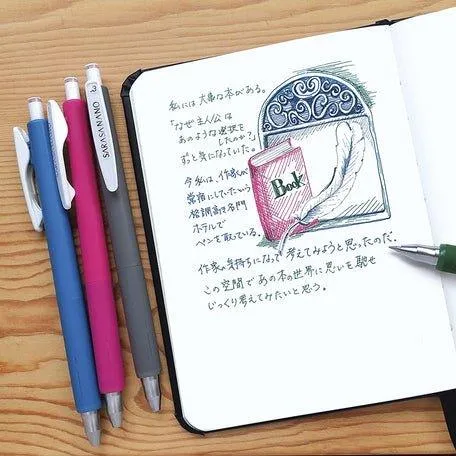 私には大事な本がある。
「なぜ主人公は
あのような選択を
したのか?」
ずと気になっていた。
今私は、作家が
常宿にしていたという
格調高き名門
ホテルで
ペンを取っている。
作家の気持ちになって考えてみようと思ったのだ.
この空間であの本の世界に思いを馳せ
じっくり考えてみたいと思う.
Book
SARASA NANO
0.3